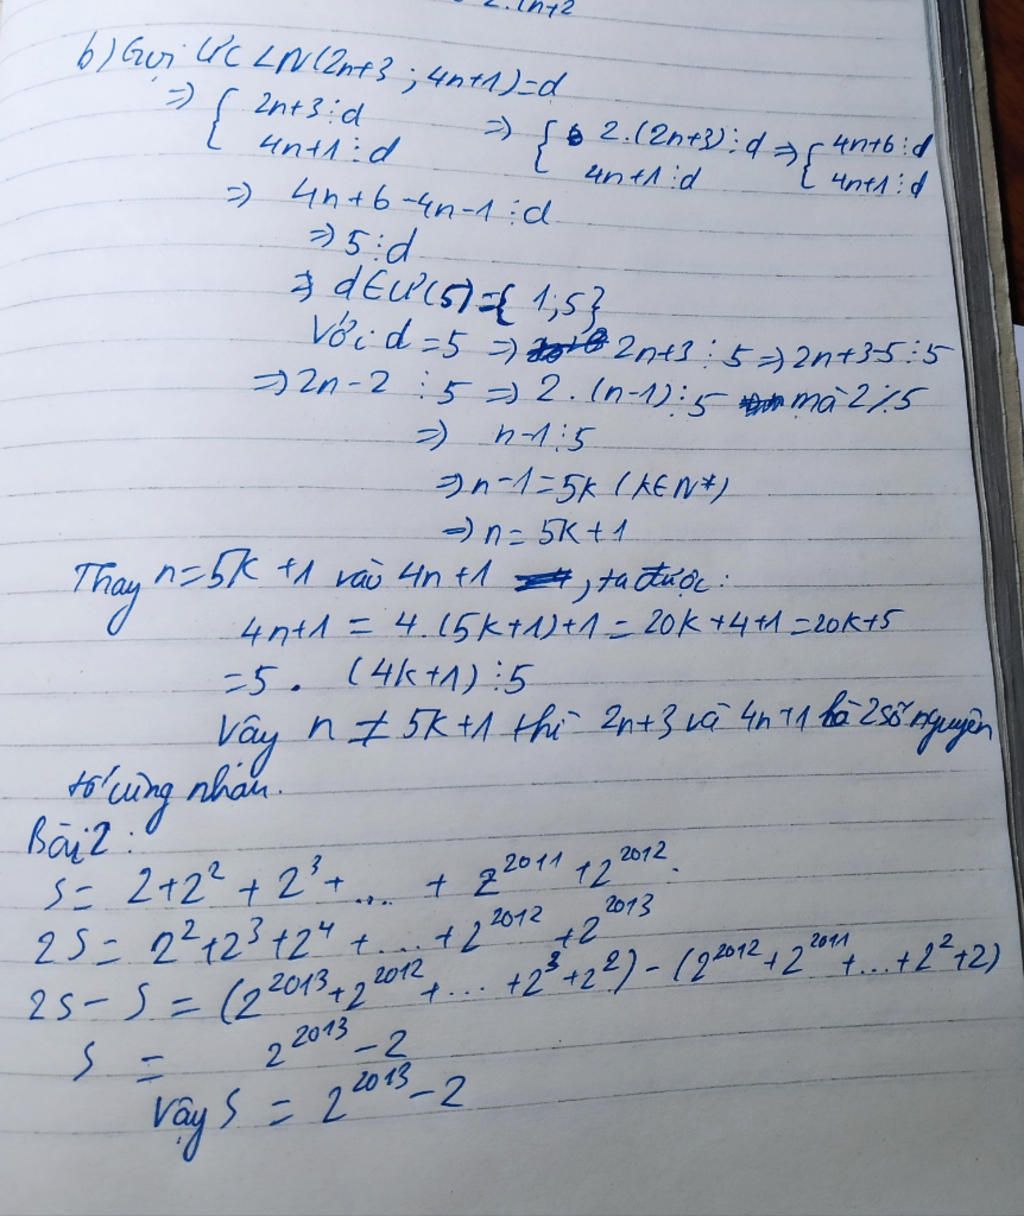 2.(n+2
b) Gọi ƯCLN(2n+3; 4n+1)=d
=> { 2n+3⋮d 4n+1⋮d => { 2.(2n+3)⋮d 4n+1⋮d => { 4n+6⋮d 4n+1⋮d
=> 4n+6-4n-1⋮d
=> 5⋮d
=> d∈Ư(5)={1;5}
Với d=5 => 2n+3⋮5 => 2n+3-5⋮5
=> 2n-2⋮5 => 2.(n-1)⋮5 mà 2⋮̸5
=> n-1⋮5
=> n-1=5k (k∈N*)
=> n=5k+1
Thay n=5k+1 vào 4n+1, ta được:
4n+1 = 4.(5k+1)+1 = 20k+4+1=20k+5
=5. (4k+1)⋮5
Vây n ≠ 5k+1 thì 2n+3 và 4n+1 là 2 số nguyên
tố cùng nhau.
Bài 2:
S= 2+2² + 2³+ .... + 2²⁰¹¹ +2²⁰¹².
2S= 2²+2³+2⁴ +...+2²⁰¹² +2²⁰¹³
2S-S = (2²⁰¹³+2²⁰¹²+...+2³+2²)-(2²⁰¹²+2²⁰¹¹+...+2²+2)
S = 2²⁰¹³-2
Vậy S = 2²⁰¹³-2